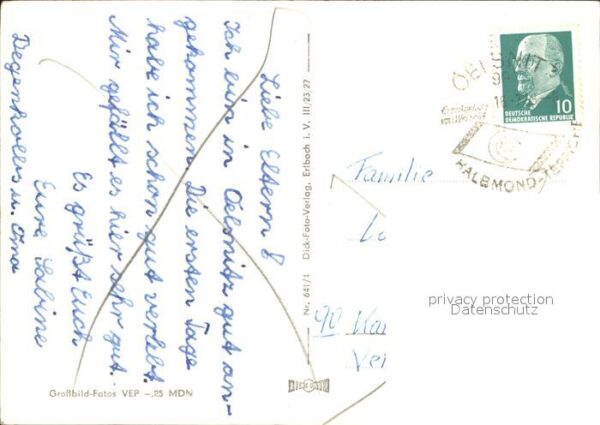 Liebe Eltern!
Ich bin in Oelsnitz gut an-
gekommen. Die ersten Tage
habe ich schon gut verlebt.
Mir gefällt es hier sehr gut.
Es grüßt Euch
Eure Sabine
Degenkolbs u. Oma
Großbild-Fotos VEP -,25 MDN
Nr. 641/1 Dick-Foto-Verlag, Erlbach i. V. III/23/27
OELSNITZ
HALBMOND-TEPPICHE
10
DEUTSCHE
DEMOKRATISCHE REPUBLIK
Familie
90
privacy protection
Datenschutz